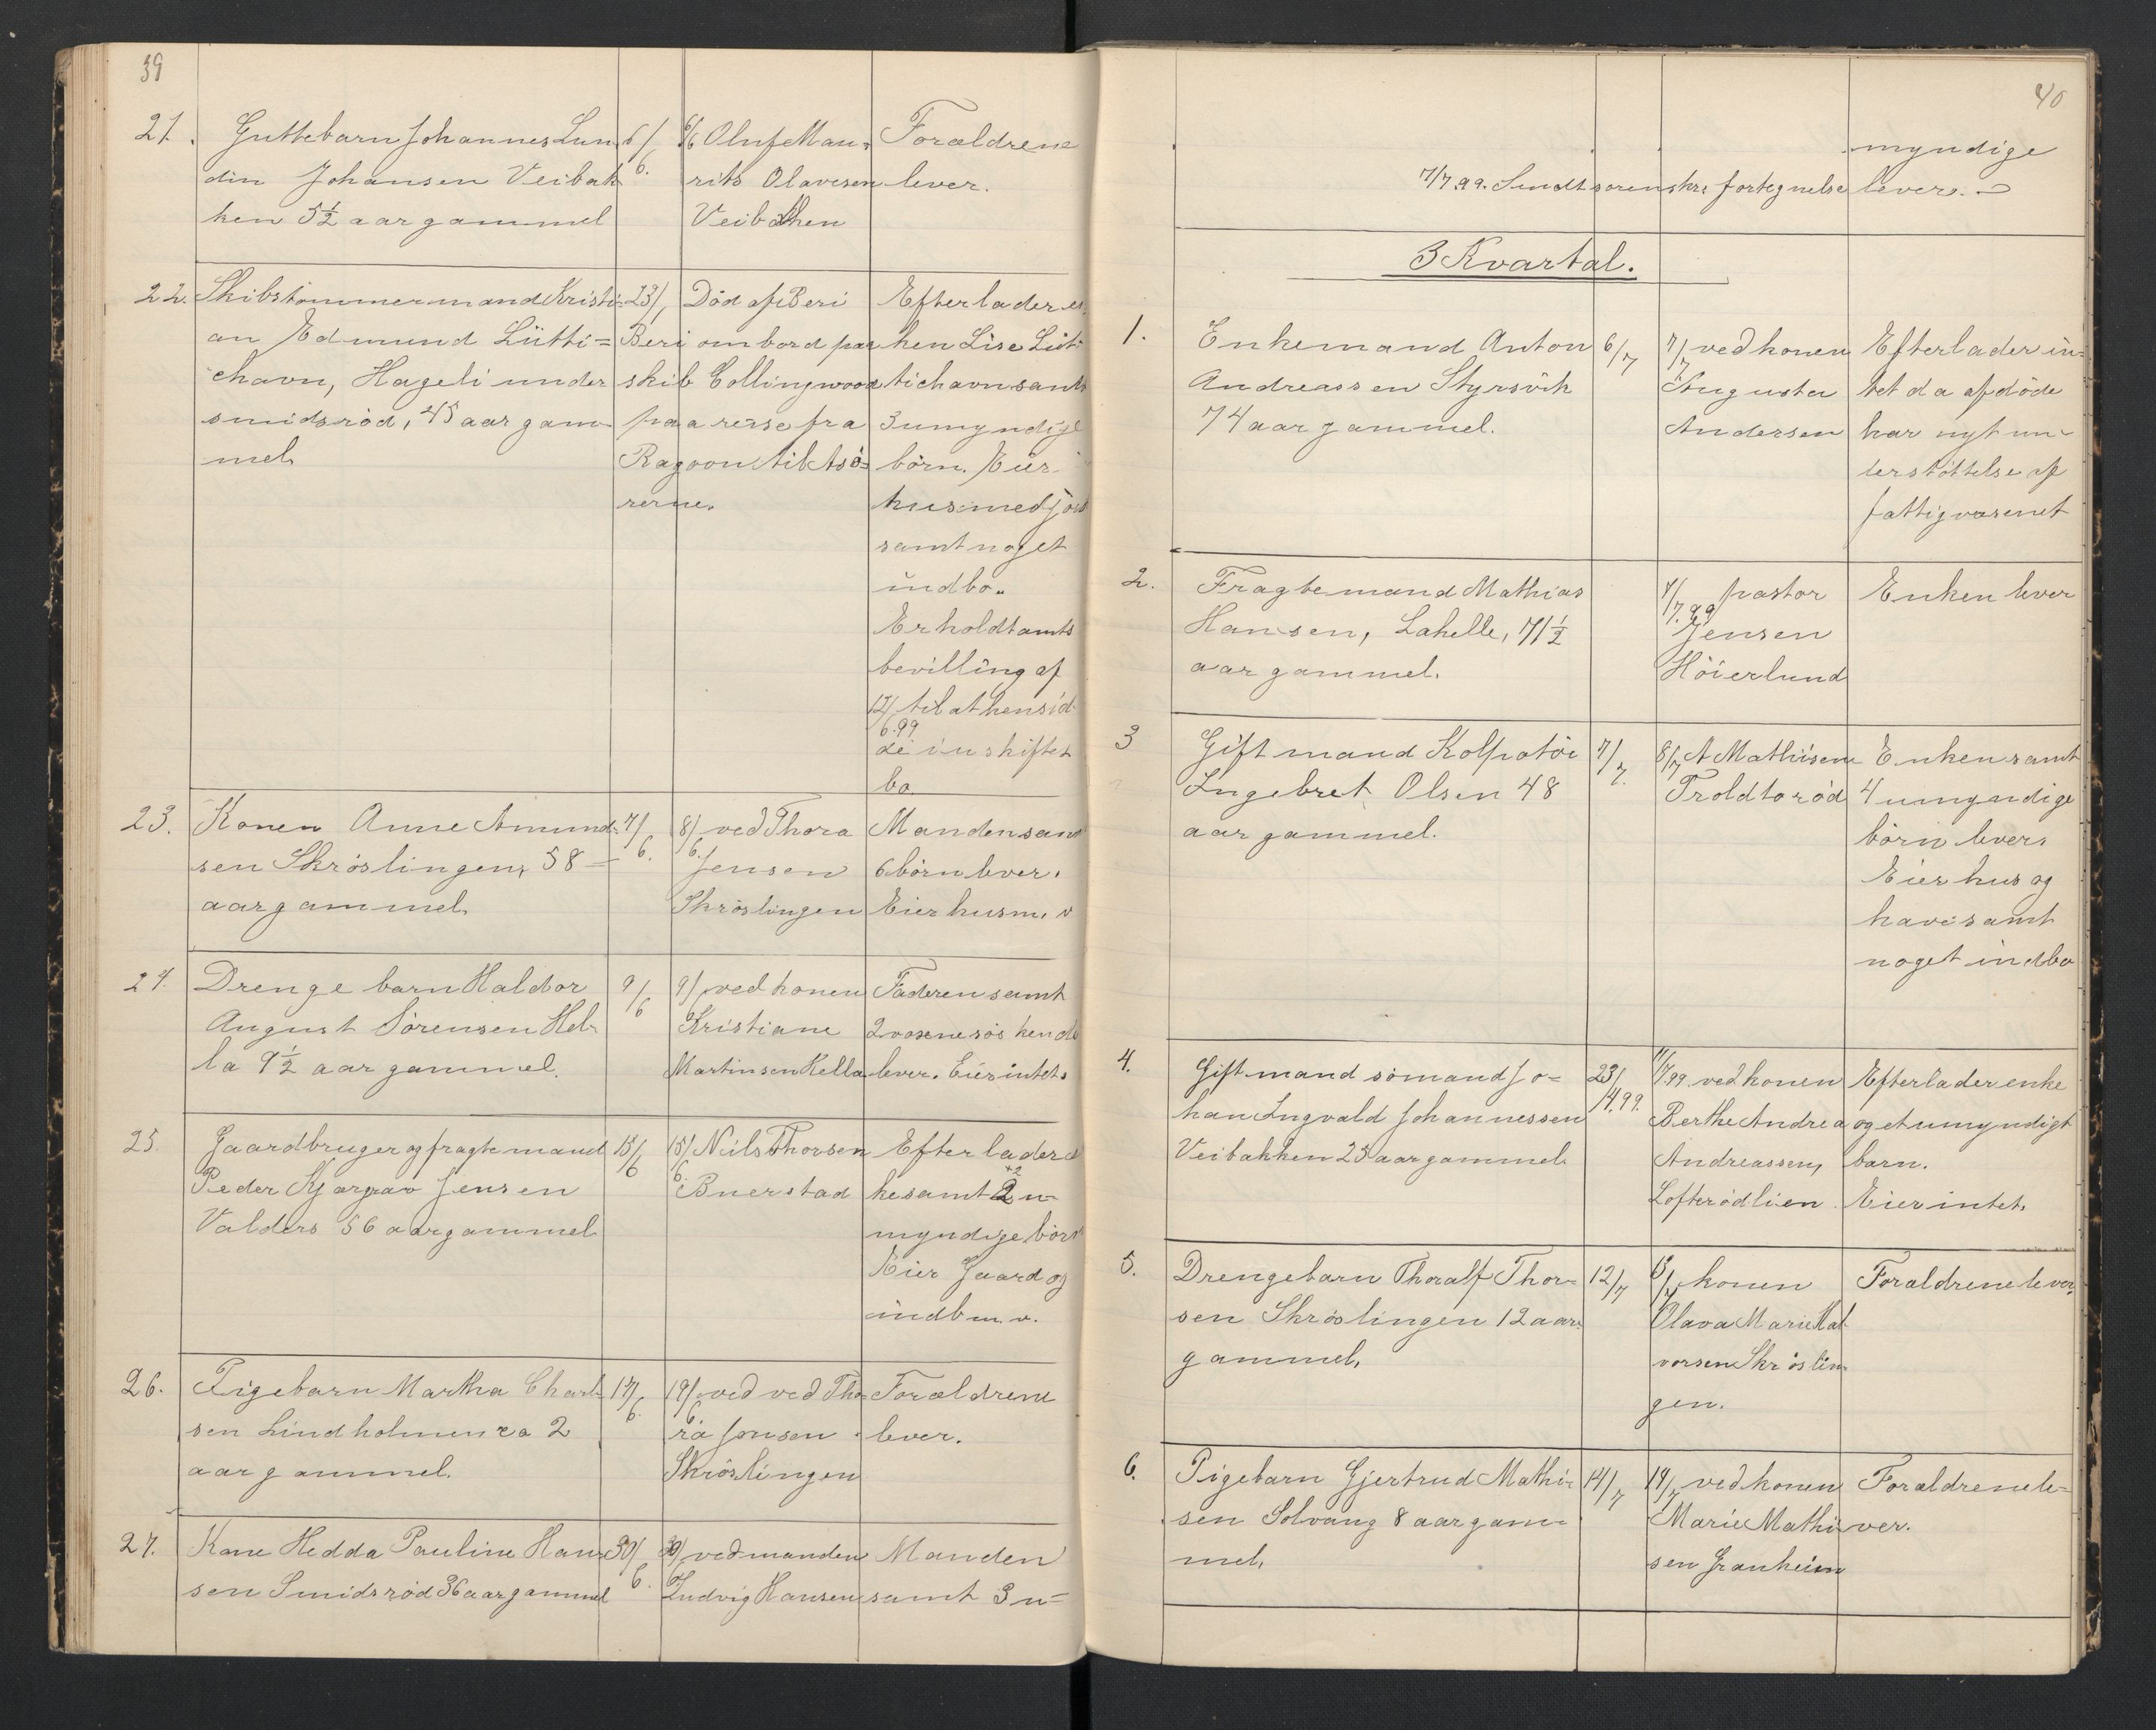 39
21. Guttebarn Johannes Lun- 6/6. 6/6 Oluf Mau= Forældrene
din Johansen Veibak rits Olavesen lever.
ken 5½ aar gammel Veibakken
22. Skibstømmermand Kristi= 23/1 Död af Beri Efterlader en
an Edmund Lütti= Beri ombord paa ken Lise Lüt
chavn, Hageli under skib Collingwood tichavn samt
smidsröd, 45 aar gam- paa reise fra 3 umyndige
mel. Ragoon til Asö= börn. Eier
rerne. hus med jord
samt noget
indbo.
Erholdt amts
bevilling af
12/6.99 til at hensid
de i uskiftet
bo.
23. Konen Anne Amund- 7/6. 8/6. ved Thora Manden samt
sen Skröslingen, 58 Jensen 6 börn lever.
aar gammel. Skröslingen Eier hus m. v
24. Drengebarn Haldor 9/6 9/ ved konen Faderen samt
August Sörensen Hel- Kristiane 2 voxene söskende
la 9½ aar gammel. Martinsen Hella lever. Eier intet.
25. Gaardbruger og fragtemand 15/6 15/6. Nils Thorsen Efterlader
Peder Jensen Buerstad ke samt 2 u-
Valders 56 aar gammel myndige börn
Eier Gaard og
indb m. v.
26. Pigebarn Martha Charl- 17/6. 19/6. ved ved Tho Forældrene
sen Lindholmen ca 2 ra Jensen lever.
aar gammel. Skröslingen
27. Kone Hedda Pauline Han- 30/6. 30/6 ved manden Manden
sen Smidsröd 36 aar gammel Ludvig Hansen samt 3 u=
40
myndige
7/7.99. Sendt sorenskr. fortegnelse lever.
3 Kvartal.
1. Enkemand Anton 6/7 7/7 ved konen Efterlader in=
Andreassen Styrsvik Augusta tet da afdöde
74 aar gammel. Andersen har nyt un-
derstöttelse af
fattigvæsenet
2. Fragtemand Mathias 4/7.99 pastor Enken lever
Hansen, Lahelle, 71½ Jensen
aar gammel. Höierlund
3 Gift mand Kolpotör 7/7. 8/7 A Mathisen Enken samt
Ingebret Olsen 48 Troldtoröd 4 umyndige
aar gammel. börn lever.
Eier hus og
have samt
noget indbo
4. Gift mand sömand Jo= 23/4.99. 11/7 99. ved konen Efterlader enke
han Ingvald Johannessen Berthe Andrea og et umyndigt
Veibakken 25 aar gammel. Andreassen, barn.
Lofterödlien Eier intet.
5. Drengebarn Thoralf Thor- 12/7 konen Forældrene lever.
sen Skröslingen 12 aar Olava Marie Hal
gammel. vorsen Skröslin
gen.
6. Pigebarn Gjertrud Mathi- 14/7 14/7 ved konen Forældrene le=
sen Solvang 8 aar gam= Marie Mathi- ver.
mel. sen Granheim